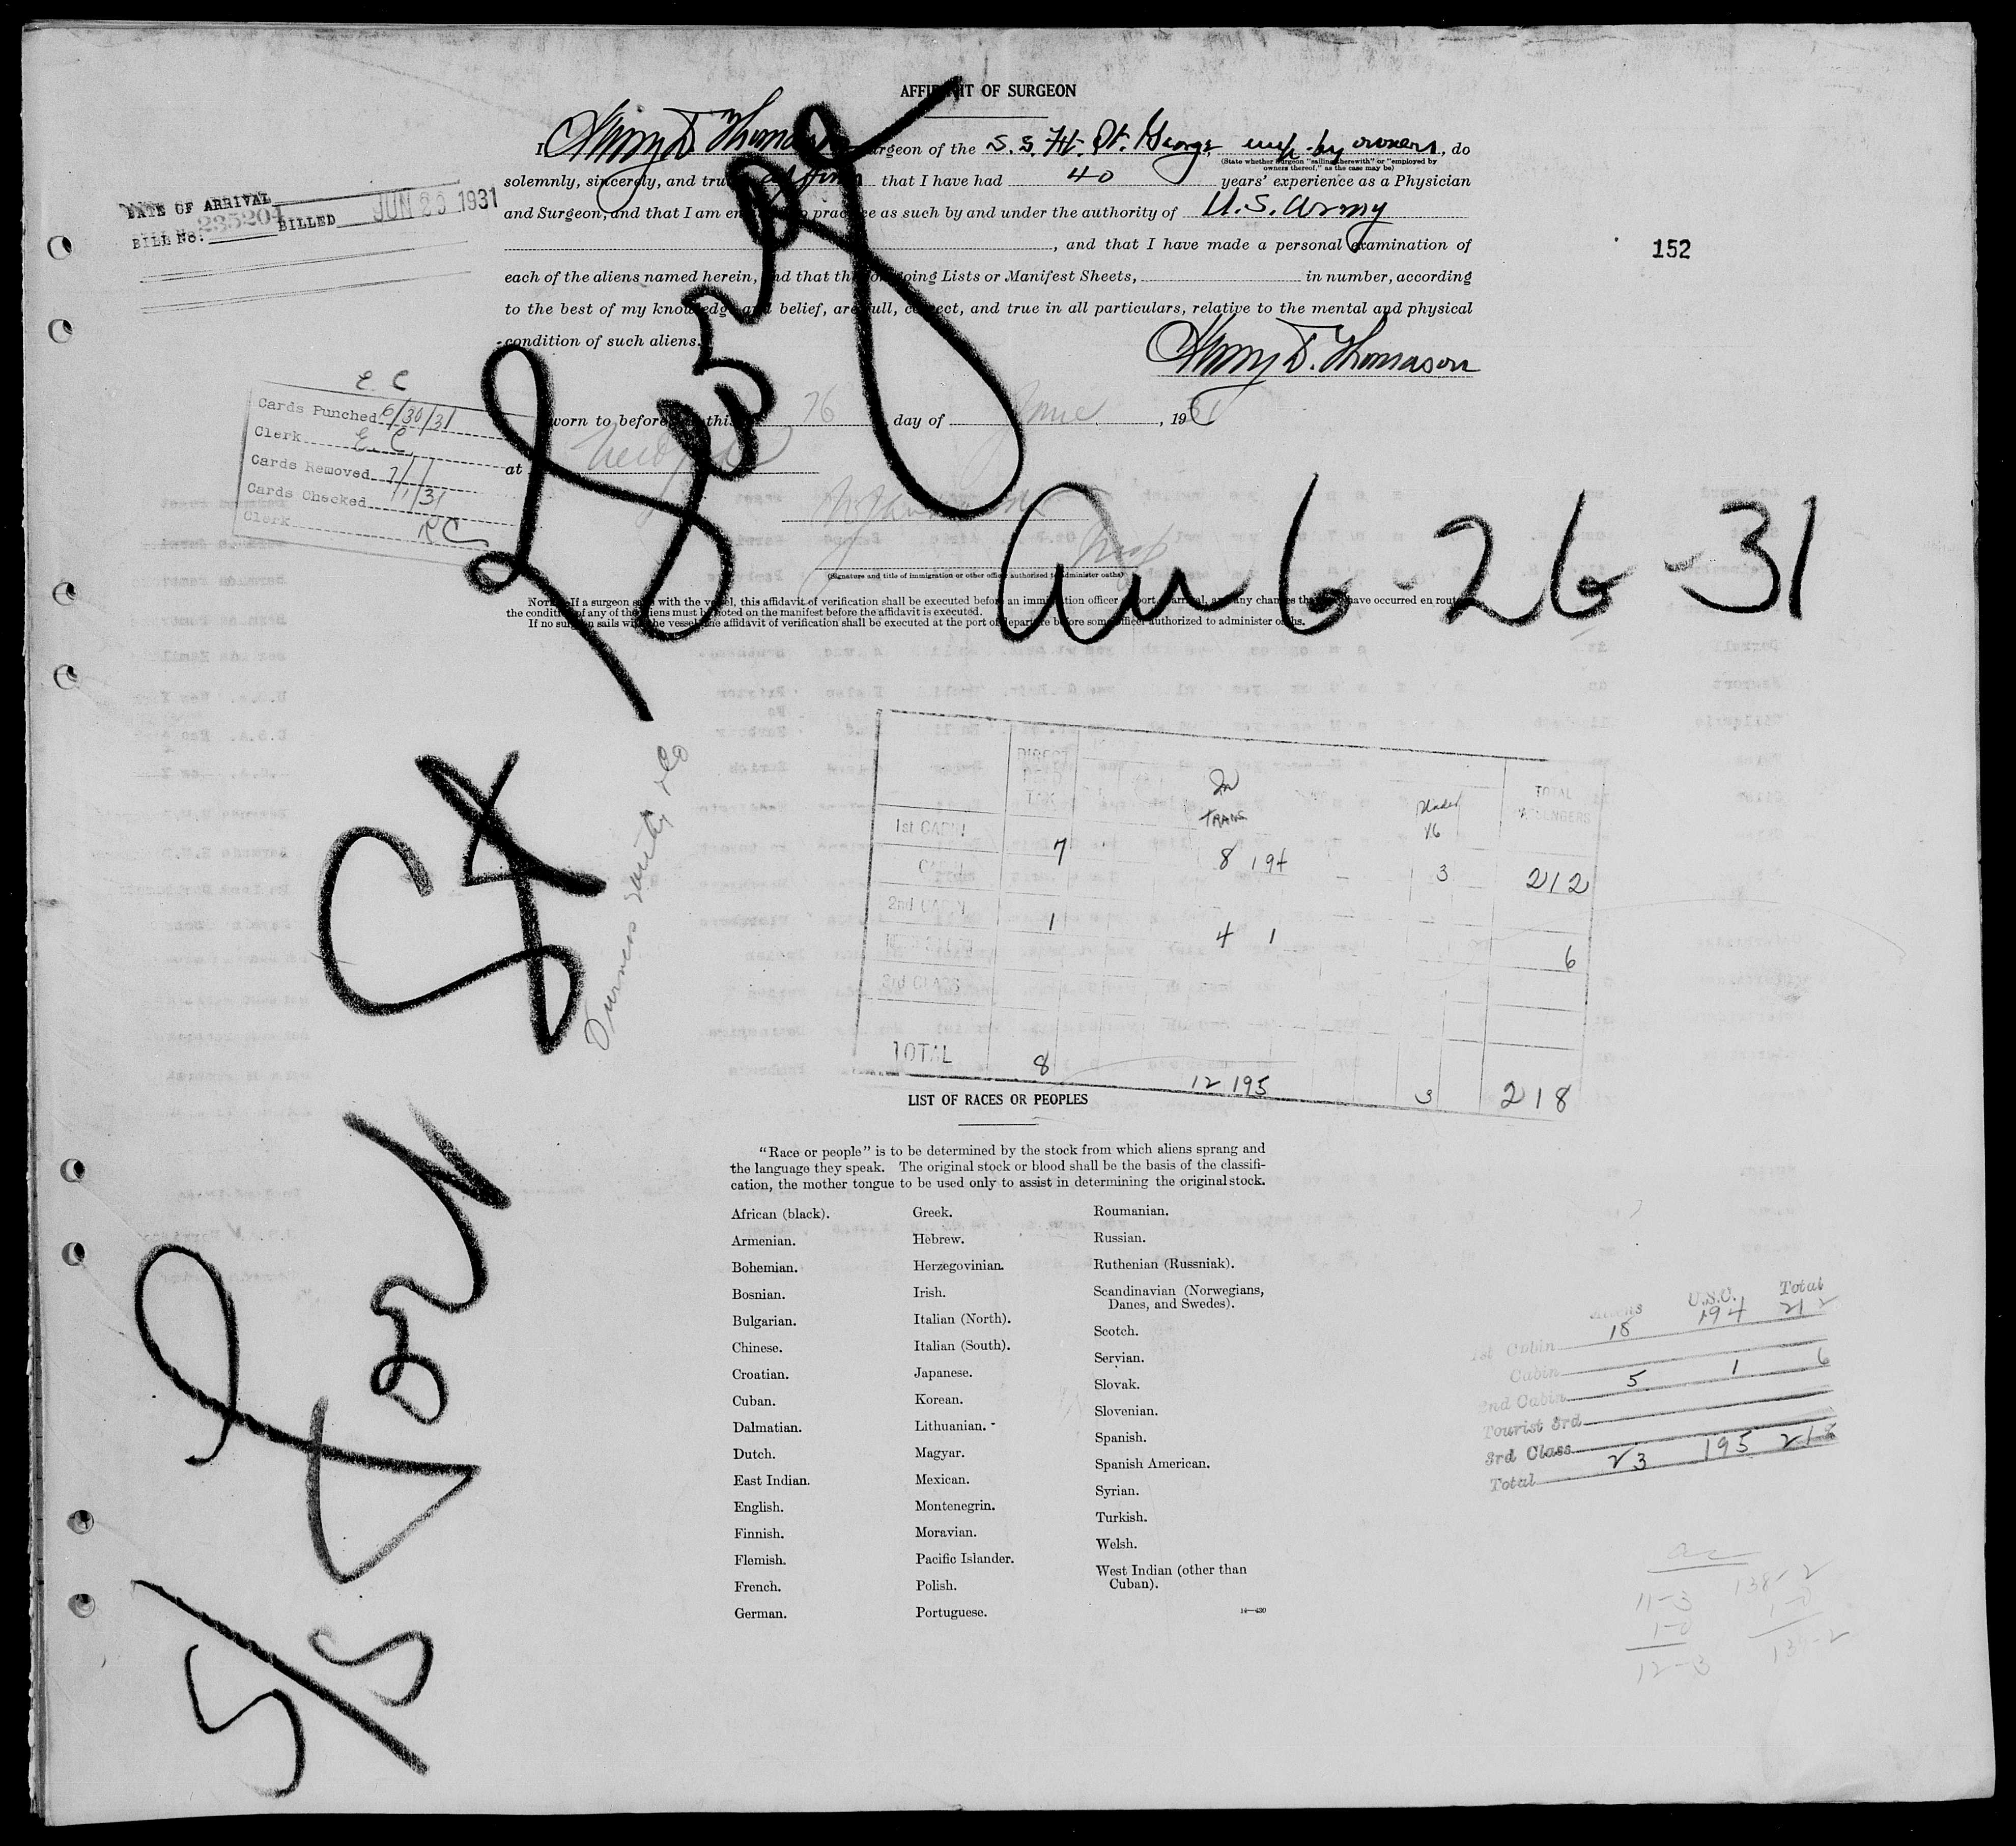 AFFIDAVIT OF SURGEON
I Henry D. Thomason Surgeon of the S.S. Ft. St. George, emp. by owners, do
(State whether surgeon "sailing therewith" or "employed by
owners thereof," as the case may be)
solemnly, sincerely, and truly affirm that I have had 40 years' experience as a Physician
and Surgeon, and that I am entitled to practice as such by and under the authority of U.S. Army
, and that I have made a personal examination of
each of the aliens named herein, and that the foregoing Lists or Manifest Sheets, in number, according
to the best of my knowledge and belief, are full, correct, and true in all particulars, relative to the mental and physical
condition of such aliens.
Henry D. Thomason
DATE OF ARRIVAL
BILL No. 235204 BILLED JUN 29 1931
152
E.C.
Cards Punched 6/30/31
Clerk E.C.
Cards Removed 7/1/
Cards Checked 7/1/31
Clerk RC
Sworn to before me this 26 day of June, 1931
at New York
Insp
(Signature and title of immigration or other officer authorized to administer oaths)
NOTE.—If a surgeon sails with the vessel, this affidavit of verification shall be executed before an immigration officer at port of arrival, and any changes that may have occurred en route in
the condition of any of the aliens must be noted on the manifest before the affidavit is executed.
If no surgeon sails with the vessel, the affidavit of verification shall be executed at the port of departure before some officer authorized to administer oaths.
S/S Fort St George
Arr 6-26-31
Furness
DIRECT HEAD TAX In TRANS Under 16 TOTAL PASSENGERS
1st CABIN 7 8 194 3 212
CABIN
2nd CABIN 1 4 1 6
3rd CLASS
TOTAL 8 12 195 3 218
LIST OF RACES OR PEOPLES
"Race or people" is to be determined by the stock from which aliens sprang and
the language they speak. The original stock or blood shall be the basis of the classifi-
cation, the mother tongue to be used only to assist in determining the original stock.
African (black).
Armenian.
Bohemian.
Bosnian.
Bulgarian.
Chinese.
Croatian.
Cuban.
Dalmatian.
Dutch.
East Indian.
English.
Finnish.
Flemish.
French.
German.
Greek.
Hebrew.
Herzegovinian.
Irish.
Italian (North).
Italian (South).
Japanese.
Korean.
Lithuanian.
Magyar.
Mexican.
Montenegrin.
Moravian.
Pacific Islander.
Polish.
Portuguese.
Roumanian.
Russian.
Ruthenian (Russniak).
Scandinavian (Norwegians,
Danes, and Swedes).
Scotch.
Servian.
Slovak.
Slovenian.
Spanish.
Spanish American.
Syrian.
Turkish.
Welsh.
West Indian (other than
Cuban).
14—430
Aliens U.S.C. Total
1st Cabin 18 194 212
Cabin
2nd Cabin 5 1 6
Tourist 3rd
3rd Class
Total 23 195 218
11-3 138-2
1-0 1-0
12-3 139-2